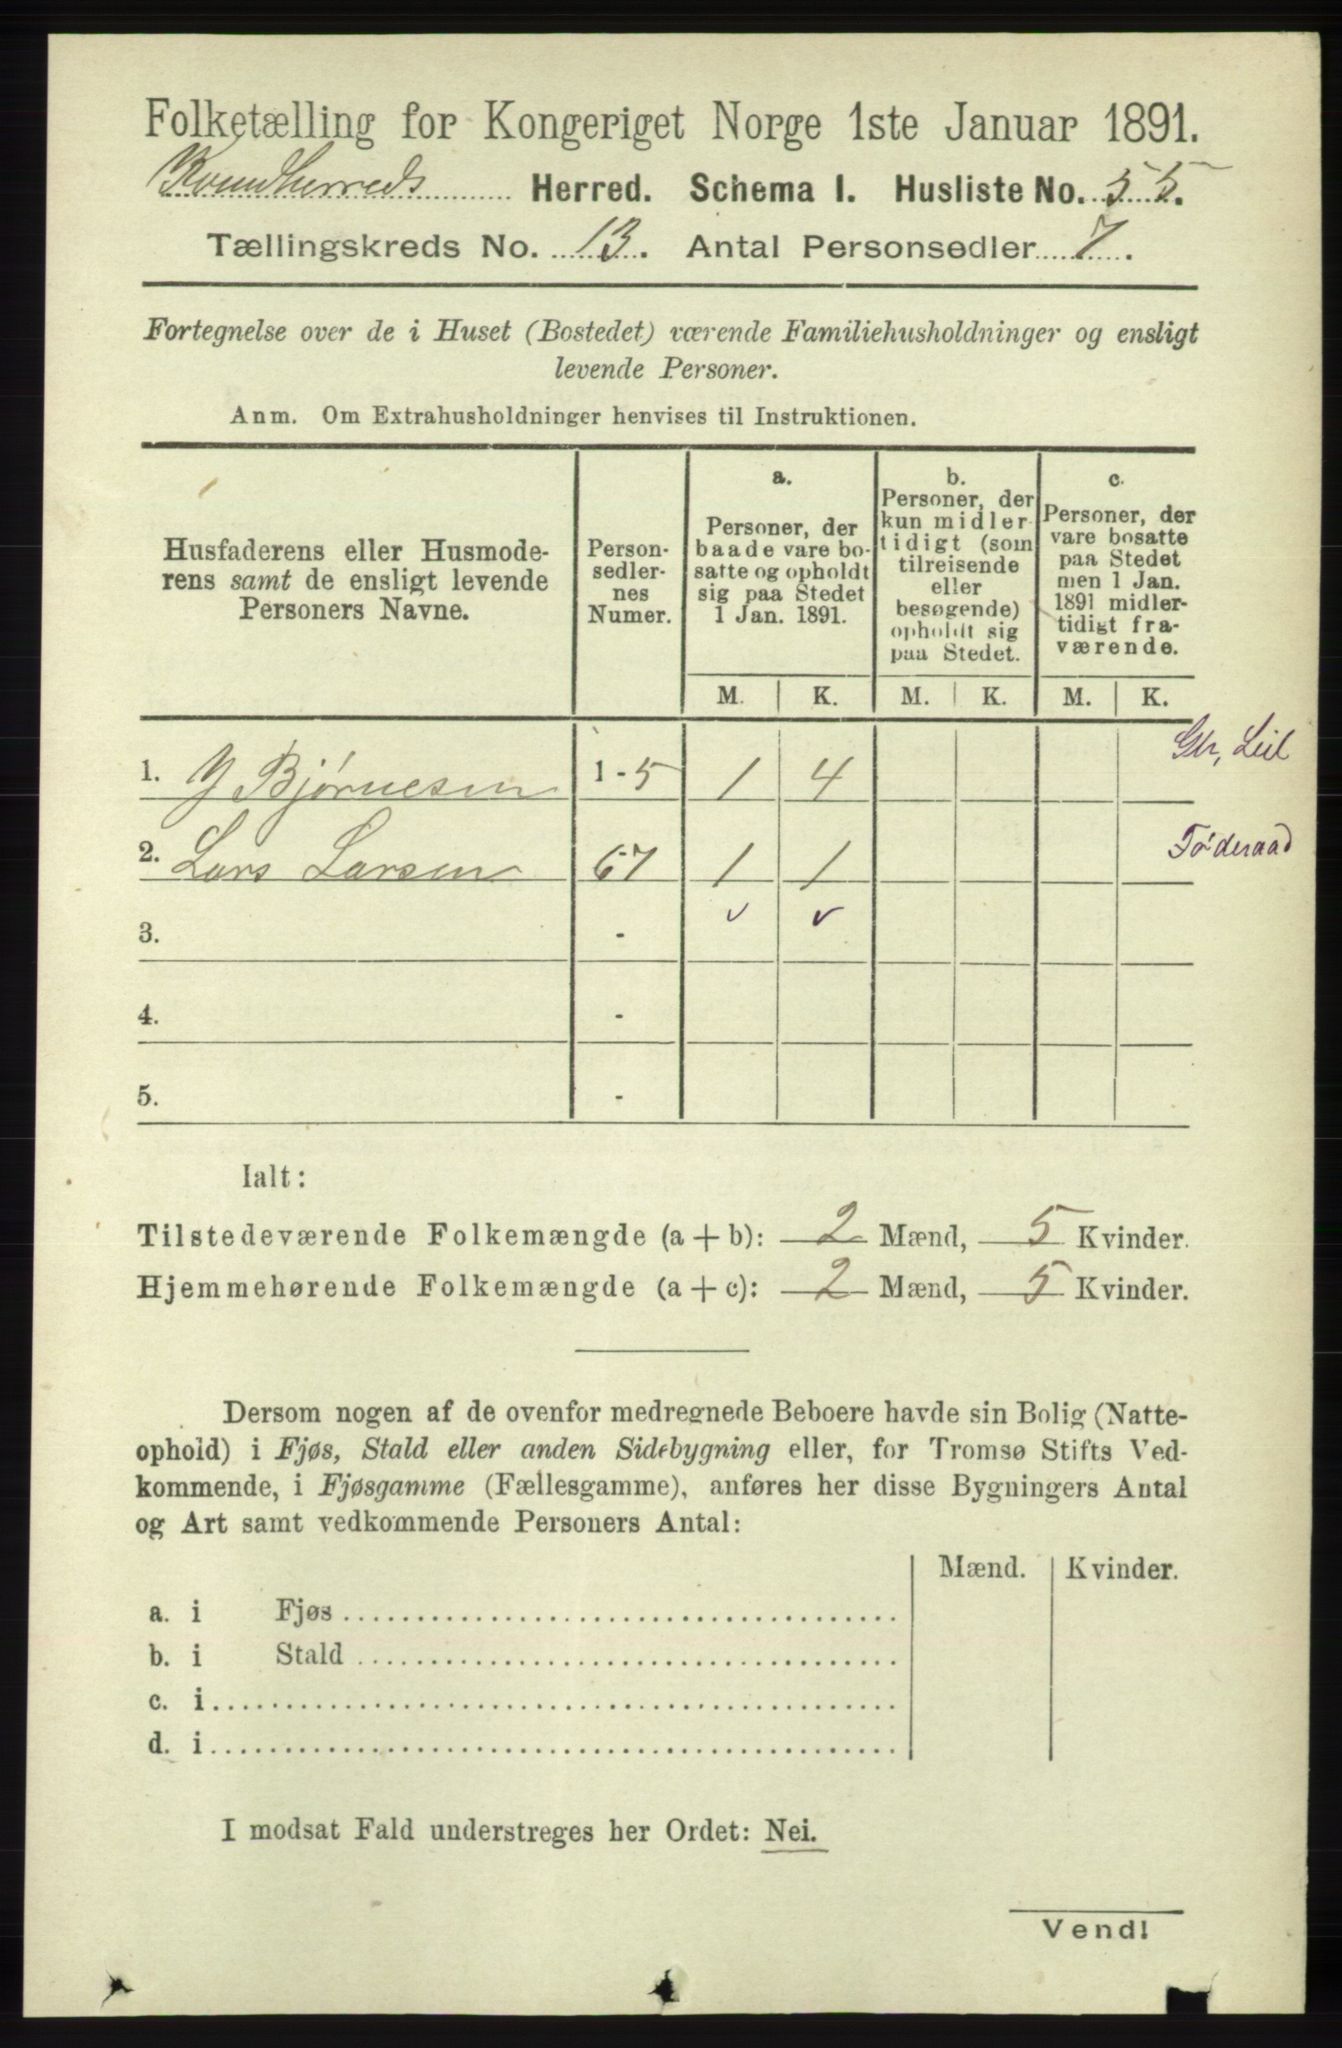 Folketælling for Kongeriget Norge 1ste Januar 1891.
Kvindherreds Herred. Schema I. Husliste No. 55.
Tællingskreds No. 13. Antal Personsedler 7.
Fortegnelse over de i Huset (Bostedet) værende Familiehusholdninger og ensligt
levende Personer.
Anm. Om Extrahusholdninger henvises til Instruktionen.
Husfaderens eller Husmode-
rens samt de ensligt levende
Personers Navne.
Person-
sedler-
nes
Numer.
a.
Personer, der
baade vare bo-
satte og opholdt
sig paa Stedet
1 Jan. 1891.
b.
Personer, der
kun midler
tidigt (som
tilreisende
eller
besøgende)
opholdt sig
paa Stedet.
c.
Personer, der
vare bosatte
paa Stedet
men 1 Jan.
1891 midler-
tidigt fra-
værende.
M. K. M. K. M. K.
1. J Bjørnesen 1-5 1 4 Gbr, Leil
2. Lars Larsen 67 1 1 Föderaad
3. -
4. -
5. -
Ialt:
Tilstedeværende Folkemængde (a + b): 2 Mænd, 5 Kvinder.
Hjemmehørende Folkemængde (a + c): 2 Mænd, 5 Kvinder.
Dersom nogen af de ovenfor medregnede Beboere havde sin Bolig (Natte-
ophold) i Fjøs, Stald eller anden Sidebygning eller, for Tromsø Stifts Ved-
kommende, i Fjøsgamme (Fællesgamme), anføres her disse Bygningers Antal
og Art samt vedkommende Personers Antal:
Mænd. Kvinder.
a. i Fjøs
b. i Stald
c. i
d. i
I modsat Fald understreges her Ordet: Nei.
Vend!